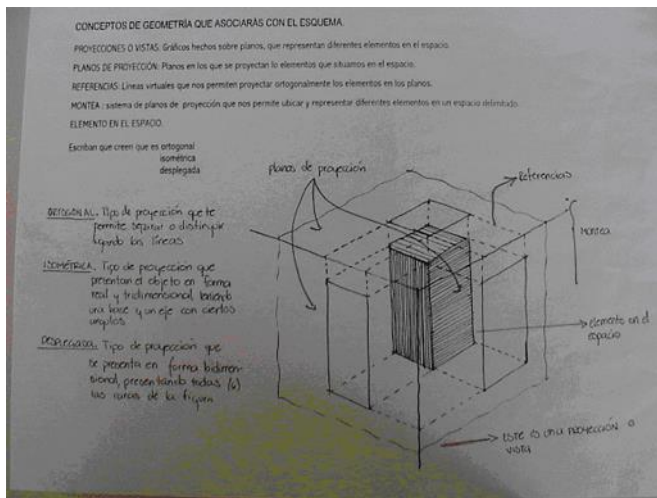 CONCEPTOS DE GEOMETRÍA QUE ASOCIARÁS CON EL ESQUEMA.
PROYECCIONES O VISTAS: Gráficos hechos sobre planos, que representan diferentes elementos en el espacio.
PLANOS DE PROYECCIÓN: Planos en los que se proyectan lo elementos que situamos en el espacio.
REFERENCIAS: Líneas virtuales que nos permiten proyectar ortogonalmente los elementos en los planos.
MONTEA : sistema de planos de proyección que nos permite ubicar y representar diferentes elementos en un espacio delimitado.
ELEMENTO EN EL ESPACIO.
Escriban que creen que es ortogonal
isométrica
desplegada
planos de proyección
Referencias
MONTEA
ORTOGONAL. Tipo de proyección que te
permite separar o distinguir
las líneas
ISOMÉTRICA. Tipo de proyección que
presentan el objeto en forma
real y tridimensional, teniendo
una base y un eje con ciertos
angulos
elemento en el
espacio
DESPLEGADA. Tipo de proyección que
se presenta en forma bidimen-
sional, presentando todas (6)
las caras de la figura
ESTE ES UNA PROYECCIÓN o
VISTA